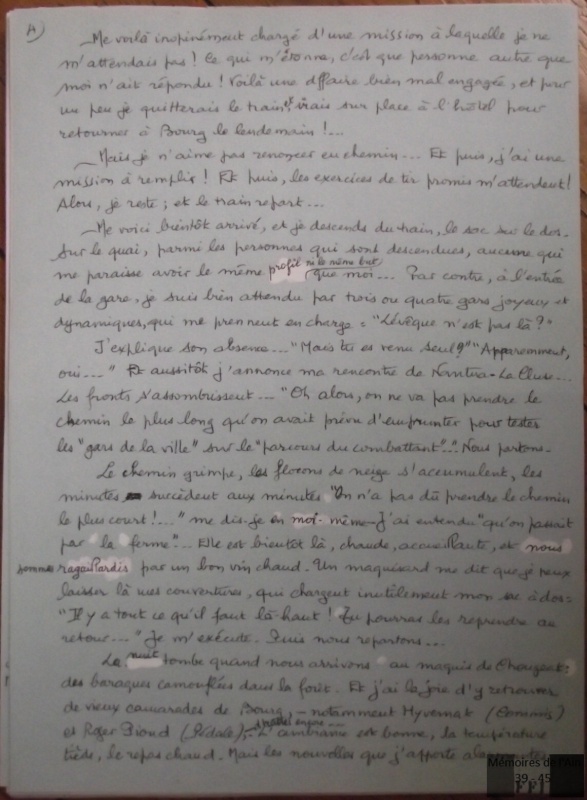 A)
Me voilà inopinément chargé d'une mission à laquelle je ne
m'attendais pas! Ce qui m'étonne, c'est que personne autre que
moi n'ait répondu! Voilà une affaire bien mal engagée, et pour
un peu je quitterais le train, et irais sur place à l'hôtel pour
retourner à Bourg le lendemain!...
Mais je n'aime pas renoncer en chemin... Et puis, j'ai une
mission à remplir! Et puis, les exercices de tir promis m'attendent!
Alors, je reste; et le train repart...
Me voici bientôt arrivé, et je descends du train, le sac sur le dos.
Sur le quai, parmi les personnes qui sont descendues, aucune qui
me paraisse avoir le même profil ni le même but que moi... Par contre, à l'entrée
de la gare, je suis bien attendu par trois ou quatre gars joyeux et
dynamiques, qui me prennent en charge: "Lévêque n'est pas là?"
J'explique son absence... "Mais tu es venu seul?" "Apparemment,
oui..." Et aussitôt j'annonce ma rencontre de Nantua-La Cluse...
Les fronts s'assombrissent... "Oh alors, on ne va pas prendre le
chemin le plus long qu'on avait prévu d'emprunter pour tester
les "gars de la ville" sur le "parcours du combattant"..." Nous partons.
Le chemin grimpe, les flocons de neige s'accumulent, les
minutes succèdent aux minutes "On n'a pas dû prendre le chemin
le plus court!..." me dis-je en moi-même - J'ai entendu "qu'on passait
par la ferme"... Elle est bientôt là, chaude, accueillante, et nous
sommes ragaillardis par un bon vin chaud. Un maquisard me dit que je peux
laisser là mes couvertures, qui chargent inutilement mon sac à dos:
"Il y a tout ce qu'il faut là-haut! Tu pourras les reprendre au
retour..." Je m'exécute. Puis nous repartons...
La nuit tombe quand nous arrivons au maquis de Chougeat:
des baraques camouflées dans la forêt. Et j'ai la joie d'y retrouver
de vieux camarades de Bourg, - notamment Hyvernat
et Roger Pioud (Vidale), d'autres encore... L'ambiance est bonne, la température
tiède, le repas chaud. Mais les nouvelles que j'apporte
Mémoires de l'Ain
39 - 45